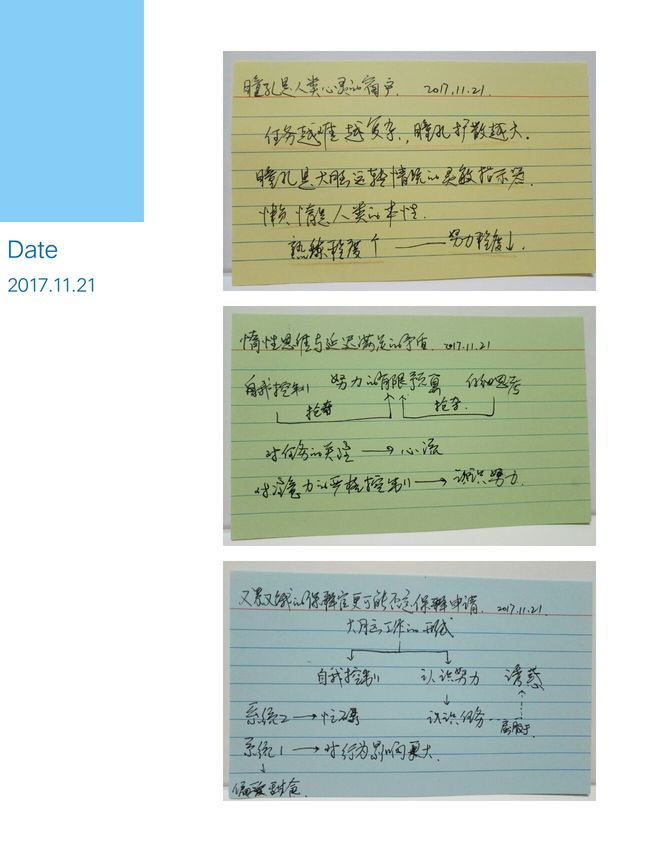 Date
2017.11.21
瞳孔是人类心灵的窗户. 2017.11.21.
任务越难越复杂, 瞳孔扩散越大.
瞳孔是大脑运转情况的灵敏指示器.
懒惰是人类的本性.
熟练程度↑ —— 努力程度↓.
惰性思维与延迟满足的矛盾. 2017.11.21
自我控制 努力的有限预算 仔细思考
抢夺 抢夺.
对任务的关注 → 心流
对注意力的严格控制 → 认识努力.
又累又饿的保释官更可能否定保释申请. 2017.11.21.
大脑工作的形式
自我控制 认识努力 诱惑
系统2 → 忙碌 认识任务 屈服于
系统1 → 对行为影响更大.
偏爱甜食